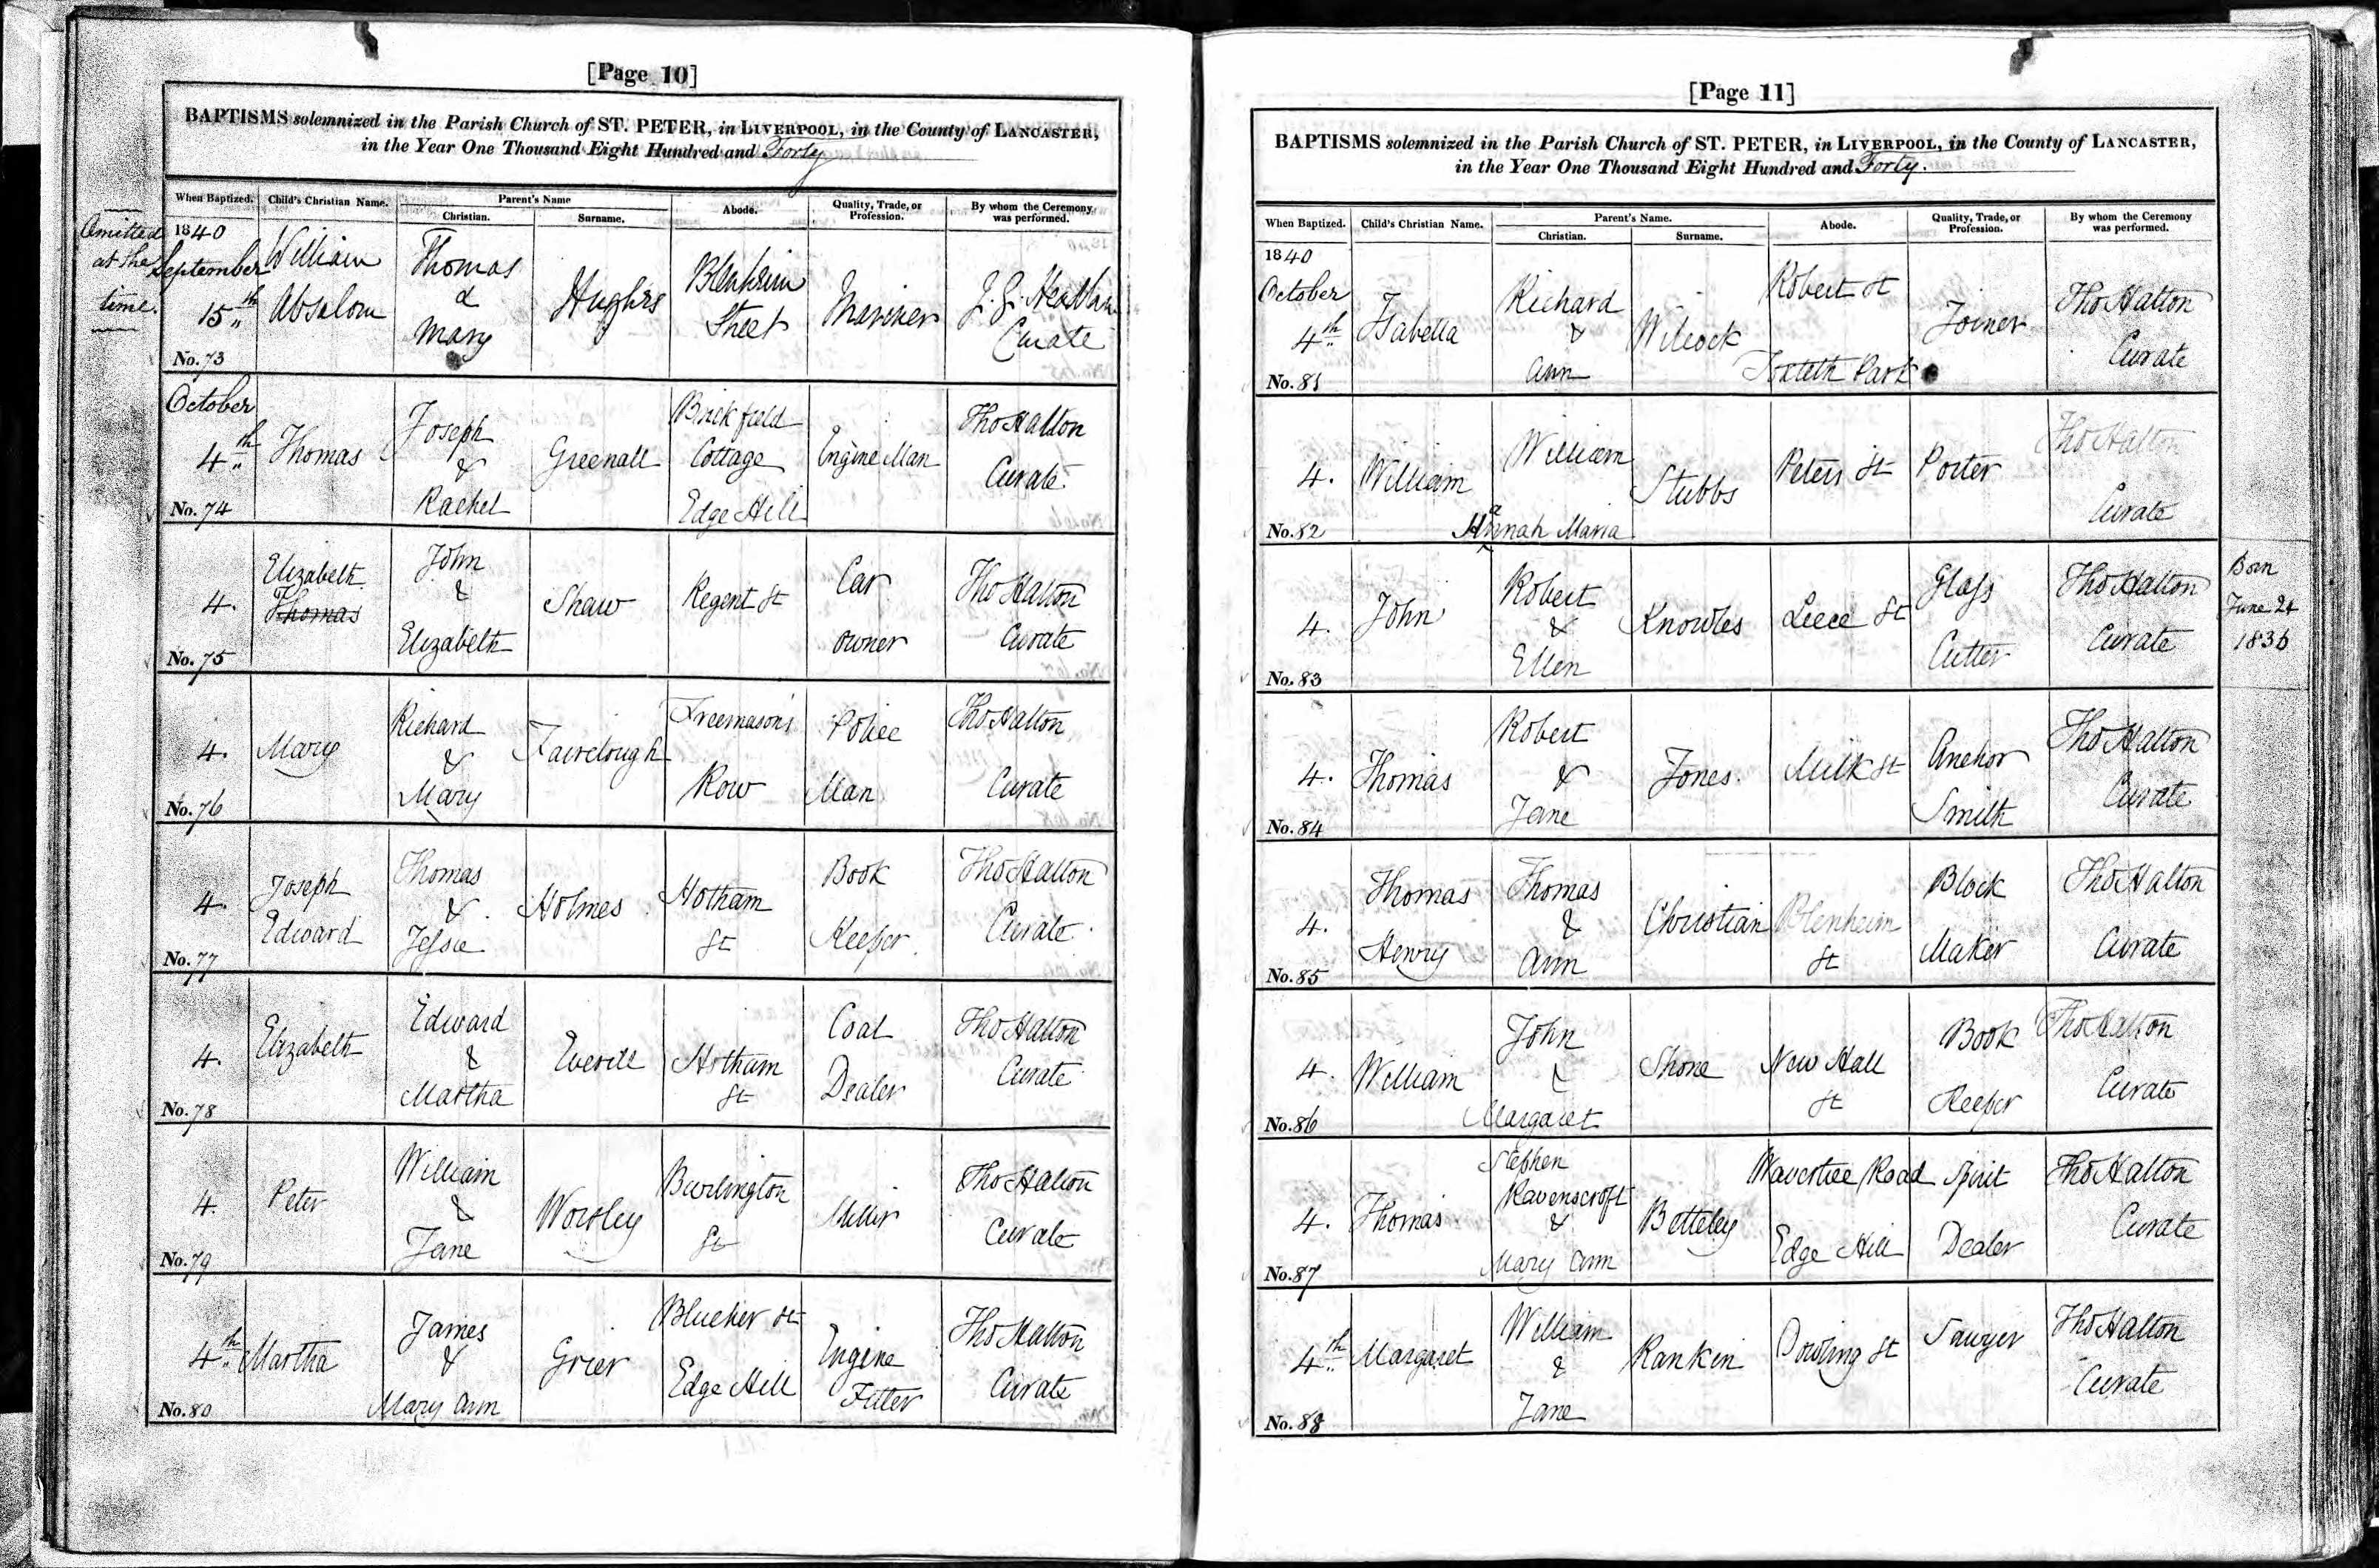 [Page 10]
BAPTISMS solemnized in the Parish Church of ST. PETER, in LIVERPOOL, in the County of LANCASTER,
in the Year One Thousand Eight Hundred and Forty
When Baptized. Child's Christian Name. Parent's Name Christian. Surname. Abode. Quality, Trade, or Profession. By whom the Ceremony was performed.
Omitted at the time.
1840
September 15th
No. 73
William Absalom
Thomas & Mary
Hughes
Blenheim Street
Mariner
Curate
October 4th
No. 74
Thomas
Joseph & Rachel
Greenall
Brickfield Cottage Edge Hill
Engine Man
Tho Halton Curate
4.
No. 75
Elizabeth Thomas
John & Elizabeth
Shaw
Regent St
Car owner
Tho Halton Curate
4.
No. 76
Mary
Richard & Mary
Fairclough
Freemason's Row
Police Man
Tho Halton Curate
4.
No. 77
Joseph Edward
Thomas & Jessie
Holmes
Hotham St
Book Keeper
Tho Halton Curate
4.
No. 78
Elizabeth
Edward & Martha
Hotham St
Coal Dealer
Tho Halton Curate
4.
No. 79
Peter
William & Jane
Worsley
Burlington St
Miller
Tho Halton Curate
4th
No. 80
Martha
James & Mary Ann
Grier
Blucher St Edge Hill
Engine Fitter
Tho Halton Curate
[Page 11]
BAPTISMS solemnized in the Parish Church of ST. PETER, in LIVERPOOL, in the County of LANCASTER,
in the Year One Thousand Eight Hundred and Forty.
When Baptized. Child's Christian Name. Parent's Name. Christian. Surname. Abode. Quality, Trade, or Profession. By whom the Ceremony was performed.
1840
October 4th
No. 81
Isabella
Richard & Ann
Wilcock
Robert St Toxteth Park
Joiner
Tho Halton Curate
4.
No. 82
William
William Hannah Maria
Stubbs
Peters St
Porter
Tho Halton Curate
4.
No. 83
John
Robert & Ellen
Knowles
Leece St
Glass Cutter
Tho Halton Curate
Born June 24 1836
4.
No. 84
Thomas
Robert & Jane
Jones.
Milk St
Anchor Smith
Tho Halton Curate
4.
No. 85
Thomas Henry
Thomas & Ann
Christian
Blenheim St
Block Maker
Tho Halton Curate
4.
No. 86
William
John & Margaret
Shone
New Hall St
Book Keeper
Tho Halton Curate
4.
No. 87
Thomas
Stephen Ravenscroft & Mary Ann
Betteley
Wavertree Road Edge Hill
Spirit Dealer
Tho Halton Curate
4th
No. 88
Margaret
William & Jane
Rankin
Dowling St
Sawyer
Tho Halton Curate